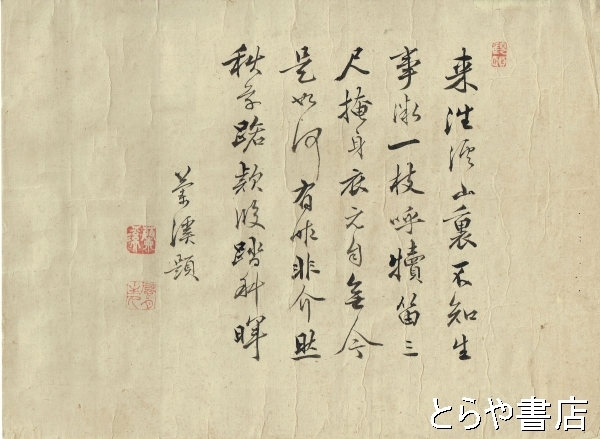 来往溪山裏不知生
事微一枝呼犢笛三
尺掩身衣元自無今
是如何有昨非介然
秋草路款段踏斜暉
溪題
とらや書店